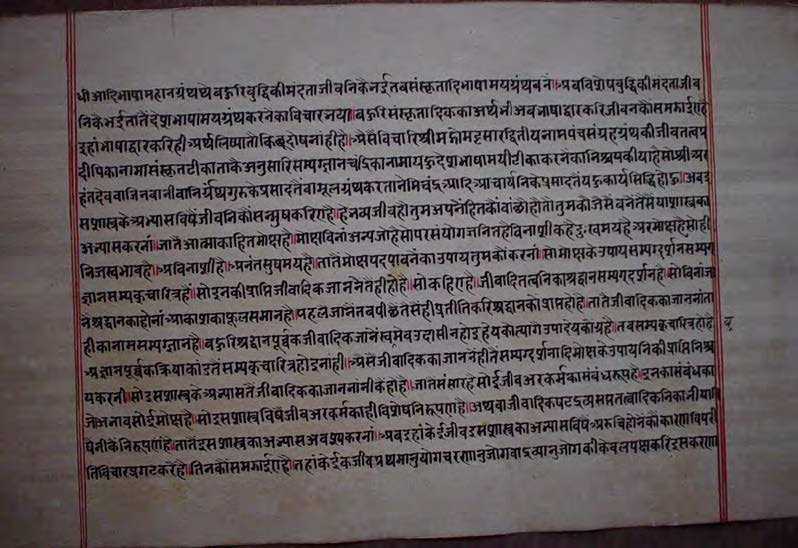 धी आदिभाषामहानग्रंथथे बहुरिबुद्धिकी मंदताजीवनिकै भई तब संस्कृतादिभाषामयग्रंथ बनें॥ अब विशेषबुद्धिकी मंदताजीव
निकै भई तातैं देशभाषामयग्रंथ करनेका विचारभया॥ बहुरि संस्कृतादिकका अर्थ भी अब भाषाद्वारकरि जीवनकौं समझाईए है
इहां भाषाद्वारकरि ही अर्थ लिष्या तौ किछू दोष नांही है॥ अैसैं विचारि श्रीमद्गोमट्टसारद्वितीयनामपंचसंग्रहग्रंथकी जीवतत्वप्र
दीपिकानामा संस्कृतटीका ताकै अनुसारि सम्यग्ज्ञानचंद्रिकानामा यहु देशभाषामयीटीका करनेका निश्चय कीया है सो श्रीअर
हंतदेव वा जिनवानी वा निर्ग्रंथगुरुके प्रसादतैं वा मूलग्रंथकरता नेमिचंद्रआदि आचार्यनिके प्रसादतैं यहु कार्य सिद्धि होहु॥ अब इ
सशास्त्रके अभ्यासविषैं जीवनिकौं सन्मुष करिए है॥ हे भव्यजीव हौ तुम अपनें हितकौं वांछो हो तौ तुमकौं जैसैं बनें तैसैं या शास्त्रका
अभ्यास करनां॥ जातैं आत्माका हित मोक्ष है॥ मोक्षविनां अन्य जो है सो परसंयोगजनित है विनाशीक है दुःखमय है अर मोक्ष है सोही
निजस्वभाव है॥ अविनाशी है॥ अनंतसुषमय है॥ तातैं मोक्षपद पावनेका उपाय तुमकौं करनां॥ सो मोक्षके उपाय सम्यग्दर्शन सम्यग्
ज्ञान सम्यक्चारित्र है॥ सो इनकी प्राप्ति जीवादिक जाननेतैं ही हो है॥ सो कहिए है॥ जीवादितत्वनिका श्रद्धान सम्यग्दर्शन है॥ सो विनां जा
नें श्रद्धानका होनां आकाशका फूलसमान है॥ पहलै जानें तब पीछै तैसैंही प्रतीतिकरि श्रद्धानकौं प्राप्त हो है॥ तातैं जीवादिकका जाननां ता
हीका नाम सम्यग्ज्ञान है॥ बहुरि श्रद्धानपूर्वक जीवादिक जानें स्वमेव उदासीन होइ हेयकौं त्यागै उपादेयकौं ग्रहै॥ तब सम्यक्चारित्र हो है
अज्ञानपूर्वक क्रियाकांडतैं सम्यक्चारित्र होइ नांही॥ अैसैं जीवादिकका जाननेंहीतैं सम्यग्दर्शनादि मोक्षके उपायनिकी प्राप्ति निश्च
य करनी॥ सो इसशास्त्रके अभ्यासतैं जीवादिकका जाननां नीकैं हो है॥ जातैं संसार है सोई जीव अर कर्मका संबंधरूप है॥ इनका संबंधका
जो अभाव सोई मोक्ष है॥ सो इसशास्त्रविषैं जीव अर कर्मकाही विशेष निरूपण है॥ अथवा जीवादिक षट्द्रव्य सप्ततत्वादिकनिका भी या वि
षैं नीकै निरूपण है॥ तातैं इसशास्त्रका अभ्यास अवश्य करनां॥ अब इहां केई जीव इसशास्त्रका अभ्यासविषैं अरुचि होनेकौं कारण विपरी
त विचार प्रगट करै है॥ तिनकौं समझाईए है॥ तहां केईक जीव प्रथमानुयोग चरणानुजोग वा द्रव्यानुजोगकी केवल पक्षकरि इस करणा